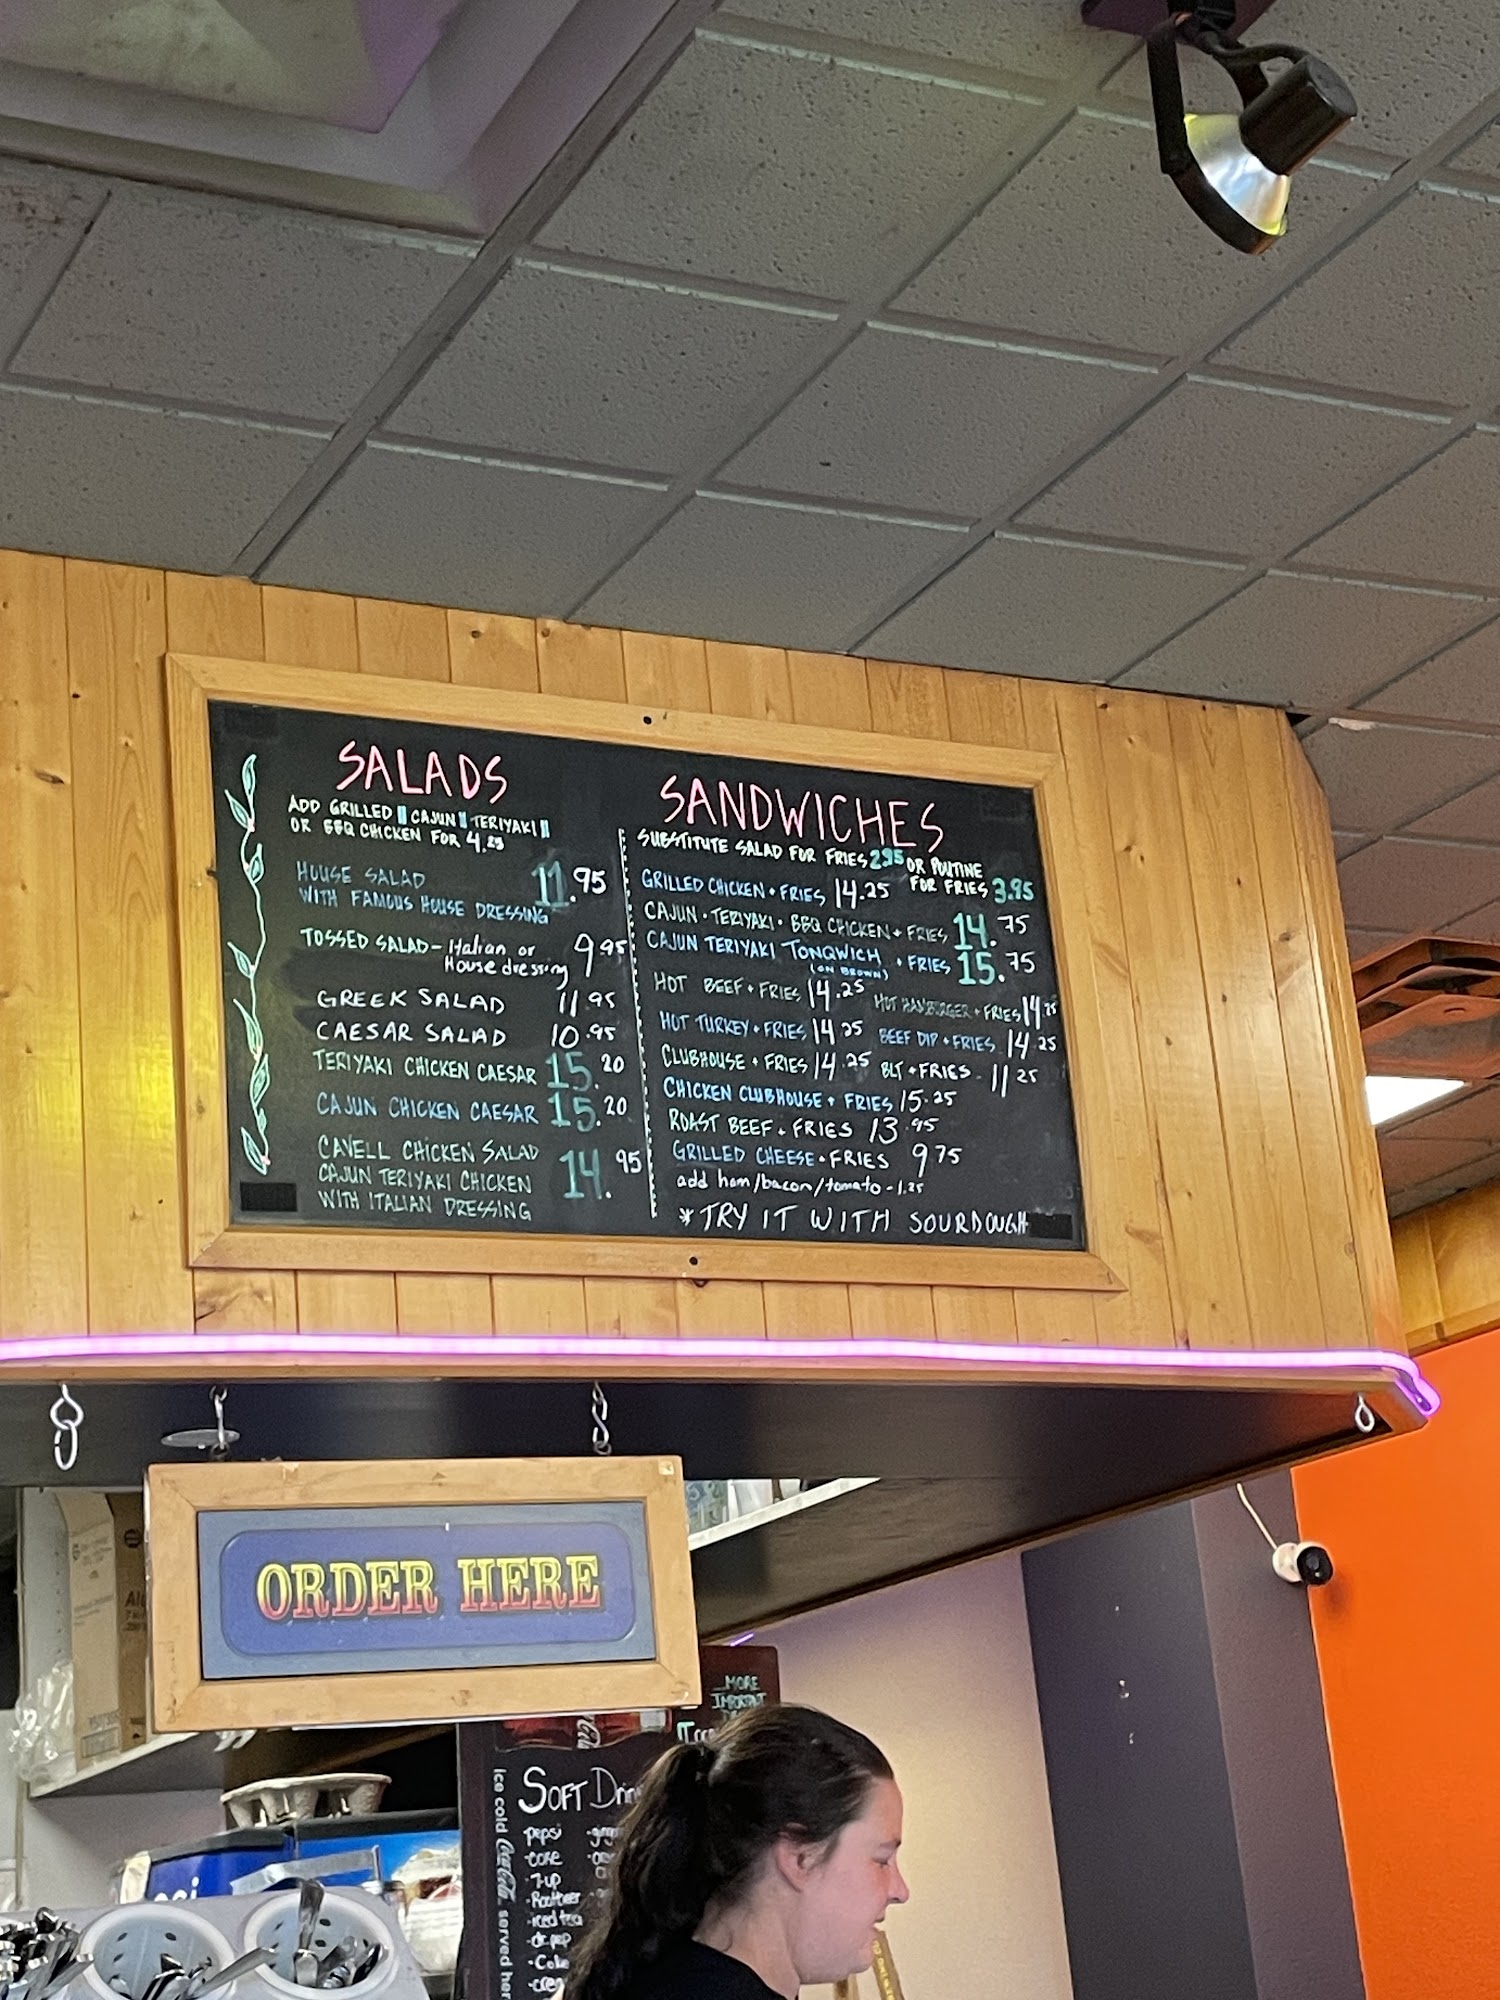 SALADS
ADD GRILLED CAJUN TERIYAKI
OR BBQ CHICKEN FOR 4.25
HOUSE SALAD 11.95
WITH FAMOUS HOUSE DRESSING
TOSSED SALAD - Italian or 9.95
House dressing
GREEK SALAD 11.95
CAESAR SALAD 10.95
TERIYAKI CHICKEN CAESAR 15.20
CAJUN CHICKEN CAESAR 15.20
CAVELL CHICKEN SALAD
CAJUN TERIYAKI CHICKEN 14.95
WITH ITALIAN DRESSING
SANDWICHES
SUBSTITUTE SALAD FOR FRIES 2.95 OR POUTINE
FOR FRIES 3.95
GRILLED CHICKEN + FRIES 14.25
CAJUN · TERIYAKI · BBQ CHICKEN + FRIES 14.75
CAJUN TERIYAKI TONQWICH + FRIES 15.75
(ON BROWN)
HOT BEEF + FRIES 14.25 HOT HAMBURGER + FRIES 14.25
HOT TURKEY + FRIES 14.25 BEEF DIP + FRIES 14.25
CLUBHOUSE + FRIES 14.25 BLT + FRIES - 11.25
CHICKEN CLUBHOUSE + FRIES 15.25
ROAST BEEF + FRIES 13.95
GRILLED CHEESE + FRIES 9.75
add ham/bacon/tomato - 1.25
*TRY IT WITH SOURDOUGH
ORDER HERE
MORE
IMPORTANT
SOFT
pepsi
·7-up
·Rootbeer
·iced tea
·dr. pep
ice cold Coca-Cola served